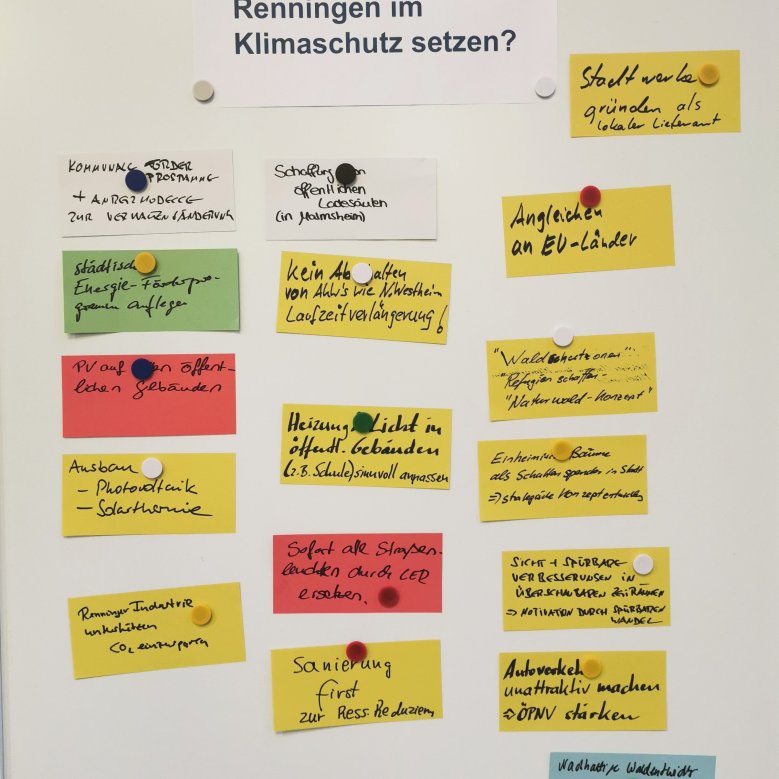 Renningen im
Klimaschutz setzen?
Stadtwerke
gründen als
lokaler Lieferant
KOMMUNALE FÖRDER
PROGRAMME
+ ANREIZMODELLE
ZUR VERHALTENSÄNDERUNG
Schaffung von
öffentlichen
Ladesäulen
(in Malmsheim)
Angleichen
an EU-Länder
städtische
Energie-Förderpro-
gramm auflegen
Kein Abschalten
von AKW's wie N.Westheim
Laufzeitverlängerung!
"Waldschutzonen"
"Refugien schaffen-
"Naturwald-Konzept"
PV auf den öffent-
lichen Gebäuden
Heizung Licht in
öffentl. Gebäuden
(z.B. Schule) sinnvoll anpassen
Einheimische Bäume
als Schattenspender in Stadt
⇒ strategische Konzept entwickeln
Ausbau
- Photovoltaik
- Solarthermie
Sofort alle Straßen-
leuchten durch LED
ersetzen.
SICHT + SPÜRBARE
VERBESSERUNGEN IN
ÜBERSCHAUBAREN ZEITRÄUMEN
⇒ MOTIVATION DURCH SPÜRBAREN
WANDEL
Renninger Industrie
unterstützen
CO₂ einzusparen
Sanierung
first
zur Ress.Reduzierung
Autoverkehr
unattraktiv machen
⇒ ÖPNV stärken
Nachhaltige